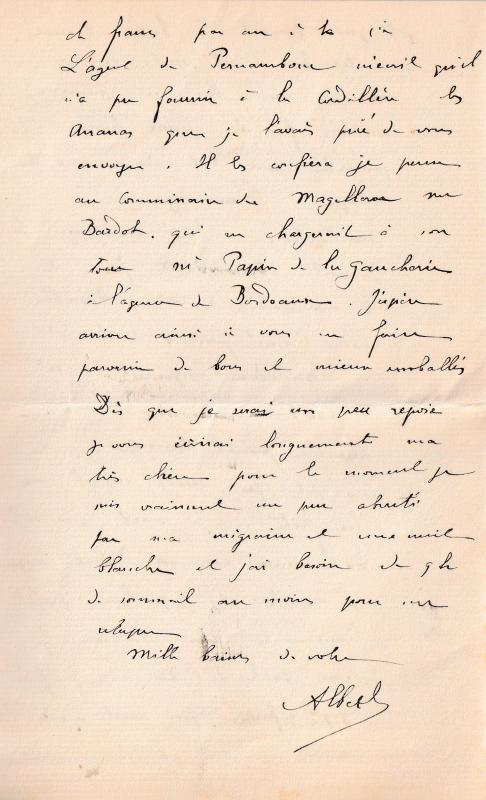 et
L'agent de Pernambouc m'écrit qu'il
n'a pu fournir à la Cordillère les
Ananas que je l'avais prié de vous
envoyer. Il les confiera je pense
au Commissaire du Magellan mr
Bardot. qui en chargerait à son
tour mr Papin de la Gaucherie
à l'agence de Bordeaux. J'espère
arriver ainsi à vous en faire
parvenir de bons et mieux emballés
Dès que je serai un peu reposé
je vous écrirai longuement ma
très chère pour le moment je
suis vraiment un peu abruti
par ma migraine et une nuit
blanche et j'ai besoin de 9h
de sommeil au moins pour me
Mille baisers de votre
Albert